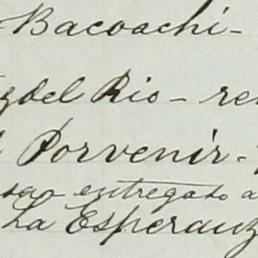 Bacoachi-
del Rio - re
Porvenir.-
entregado a
La Esperanz